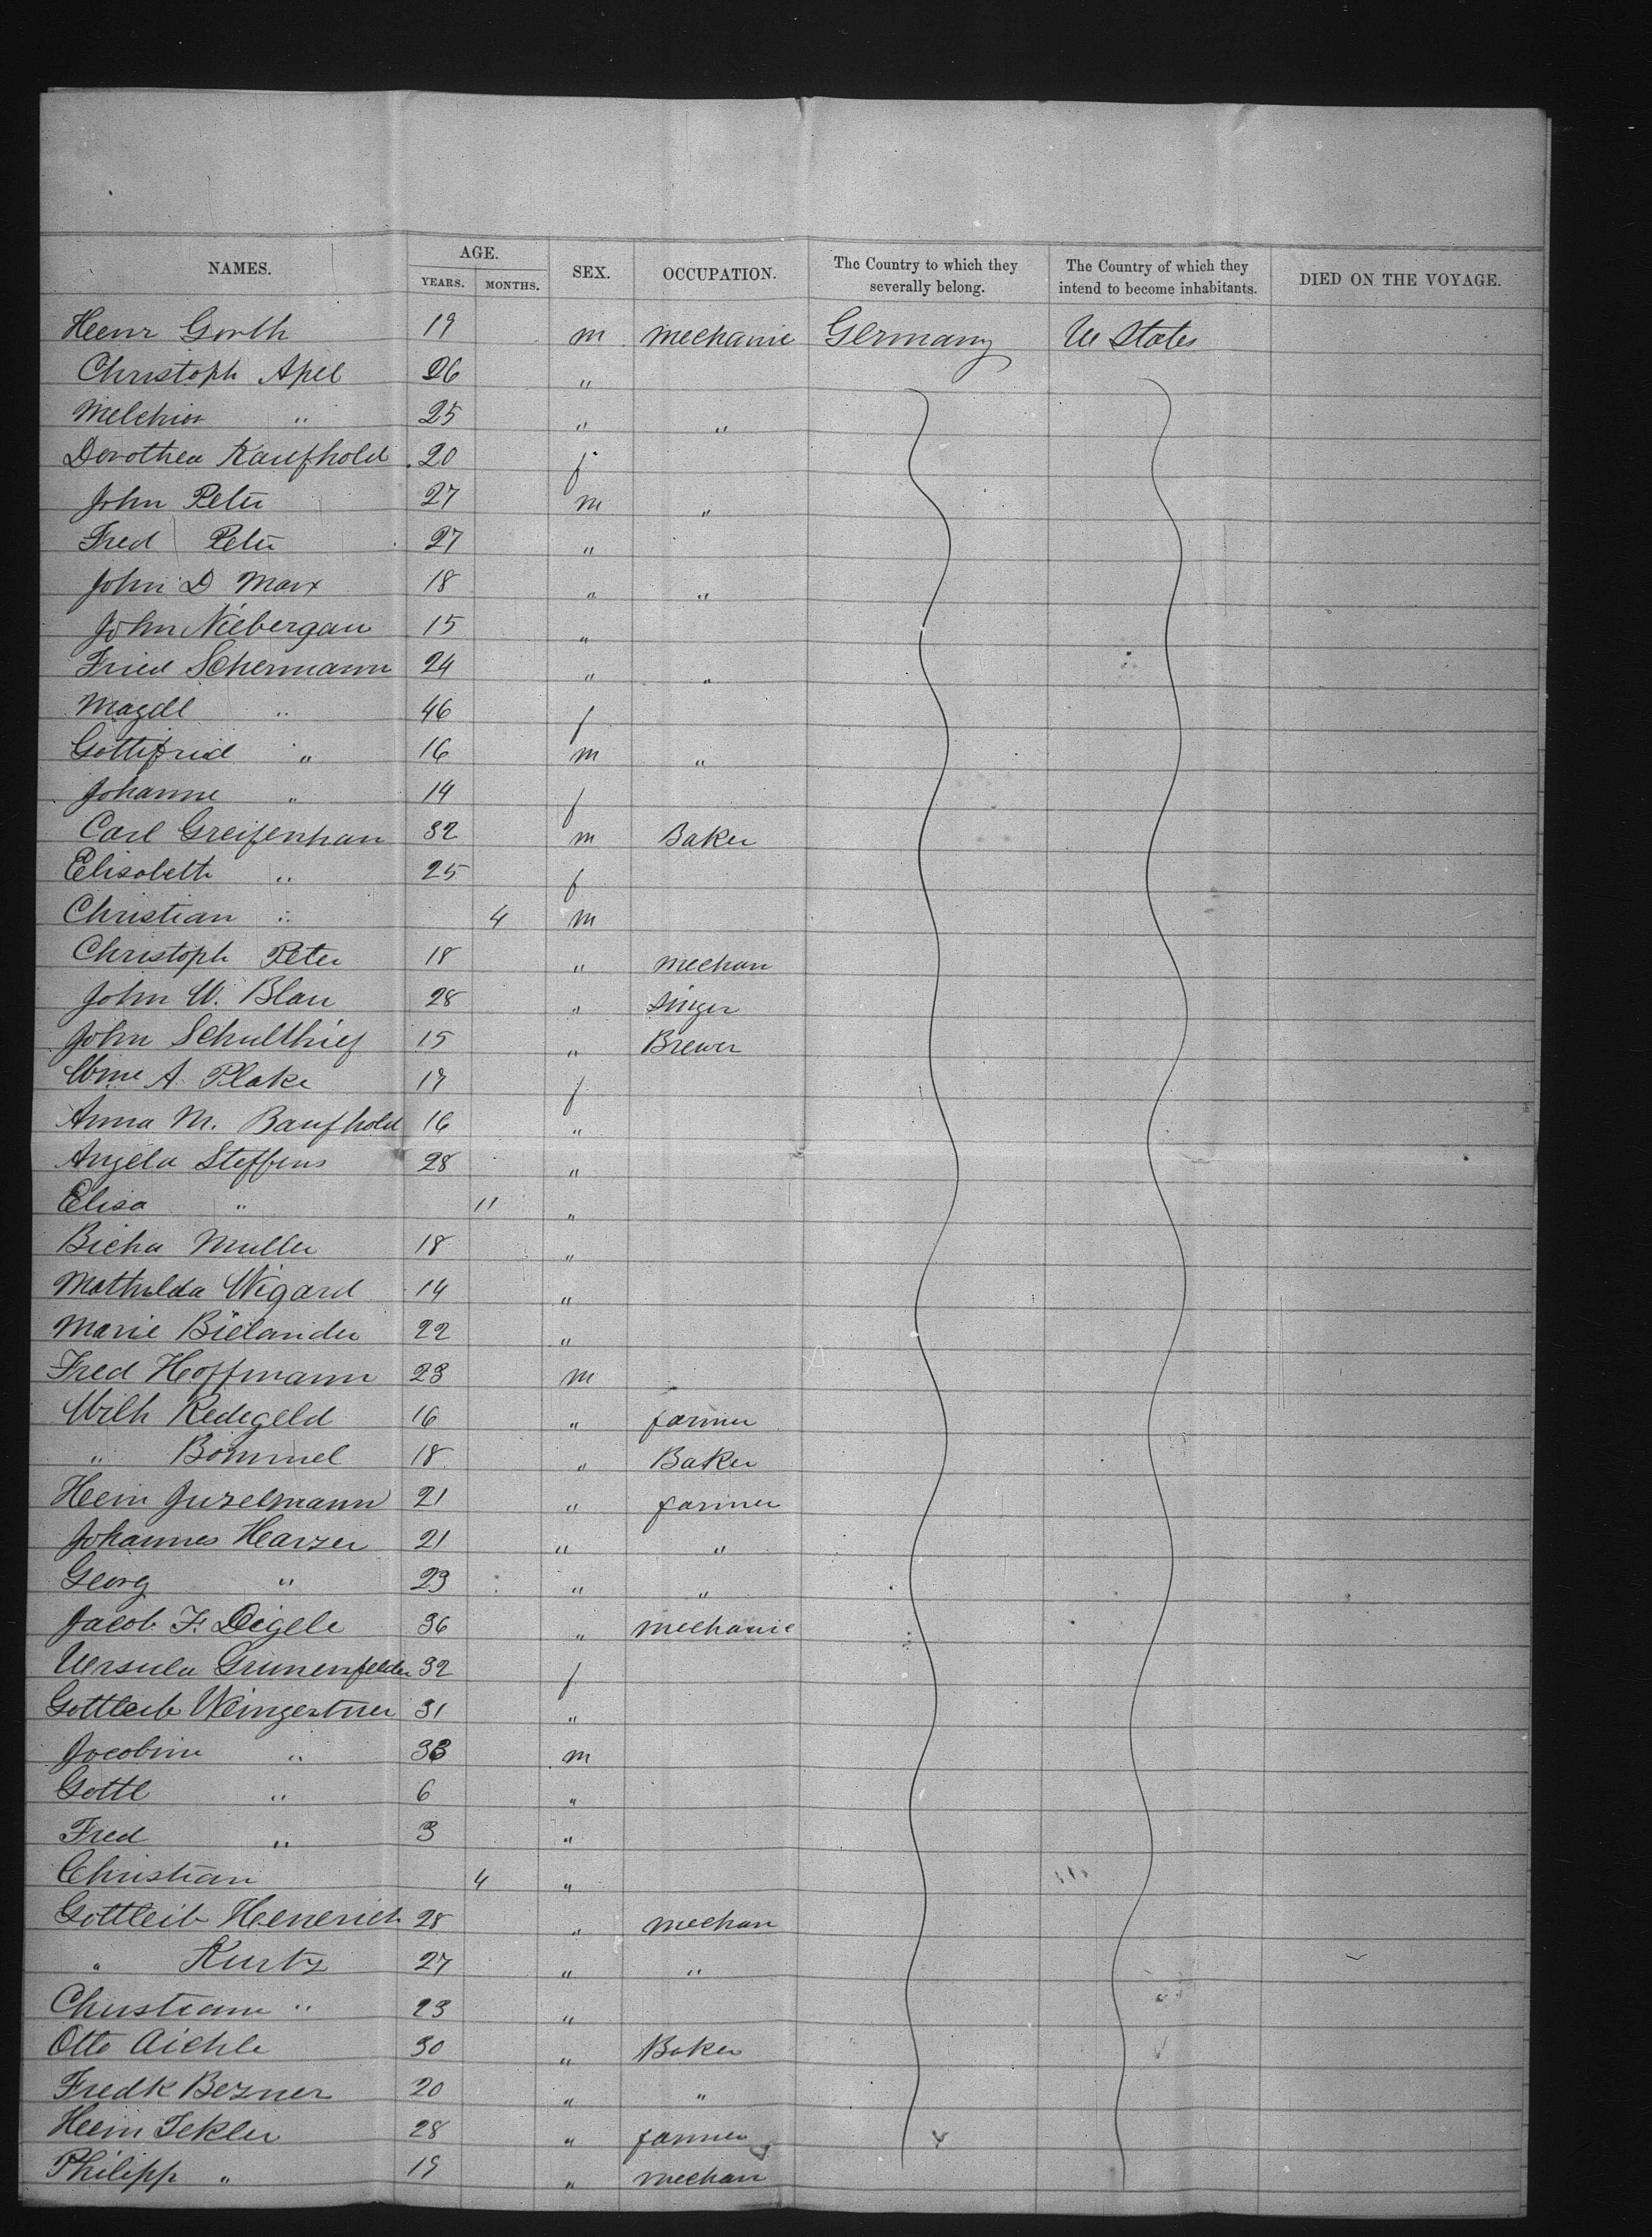 NAMES. AGE. YEARS. MONTHS. SEX. OCCUPATION. The Country to which they severally belong. The Country of which they intend to become inhabitants. DIED ON THE VOYAGE.
Heinr Gorth 19 m mechanic Germany U States
Christoph Apel 26 "
Melchior " 25 " "
Dorothea Kaufhold 20 f
John Peter 27 m "
Fred Peter 27 "
John D Marx 18 " "
John Niebergau 15 "
Fried Schermann 24 " "
Magdl " 46 f
Gottfried " 16 m "
Johanne " 14 f
Carl Greifenhan 32 m Baker
Elisabeth " 25 f
Christian " 4 m
Christoph Peter 18 " mechan
John W. Blau 28 " singer
John Schulthies 15 " Brewer
Wme A Plake 17 f
Anna M. Baufhold 16 "
Angela Steffens 28 "
Elisa " 11 "
Bicha Muller 18 "
Mathulda Wigard 14 "
Marie Bielander 22 "
Fred Hoffmann 23 m
Wilh Redegeld 16 " farmer
" Bommel 18 " Baker
Hein Juzelmann 21 " farmer
Johannes Harzer 21 " "
Georg " 23 " "
Jacob F. Deigele 36 " mechanic
Ursula Grunenfelder 32 f
Gottleib Weingertner 31 "
Jacobine " 33 m
Gottl " 6 "
Fred " 3 "
Christian 4 "
Gottleib Henerich 28 " mechan
" Kurtz 27 " "
Christiane " 23 "
Otto Aichle 30 " Baker
Fredk Bezner 20 " "
Hein Sekler 28 " farmer
Philipp " 19 " mechan